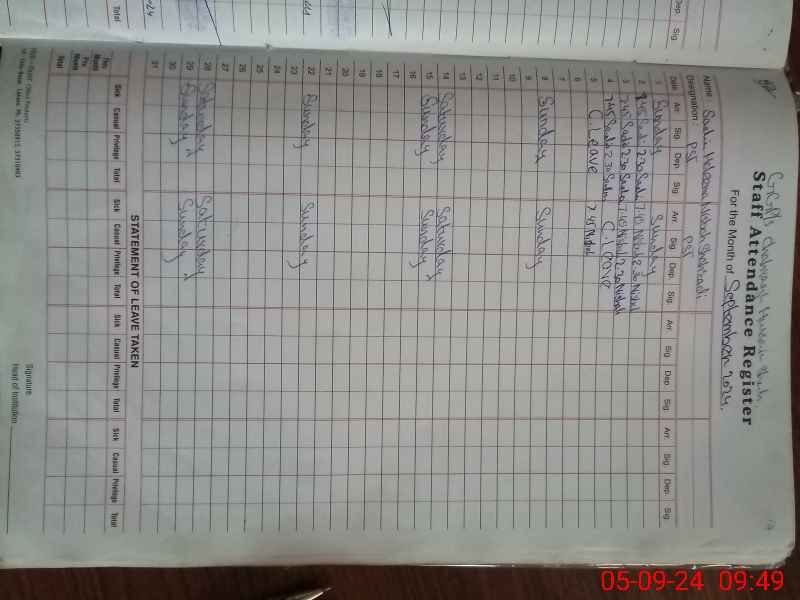 Staff Attendance Register
For the Month of September 2024.
Name:
Designation: PST PST
Date Arr. Sig. Dep. Sig. Arr. Sig. Dep. Sig. Arr. Sig. Dep. Sig. Arr. Sig. Dep. Sig.
1 Sunday Sunday
2 7 45 Sadia 2 30 Sadia 7 45 Nishat 2 30 Nishat
3 7 45 Sadia 2 30 Sadia 7 45 Nishat 2 30 Nishat
4 7 45 Sadia 2 30 Sadia C. Leave
5 C. Leave 7 45 Nishat
6
7
8 Sunday Sunday
9
10
11
12
13
14 Saturday Saturday
15 Sunday Sunday
16
17
18
19
20
21
22 Sunday Sunday
23
24
25
26
27
28 Saturday Saturday
29 Sunday Sunday
30
31
STATEMENT OF LEAVE TAKEN
Sick Casual Privilege Total Sick Casual Privilege Total Sick Casual Privilege Total Sick Casual Privilege Total
This Month
Pre. Month
Total
Signature
Head of Institution
Dep. Sig.
Total
05-09-24 09:49